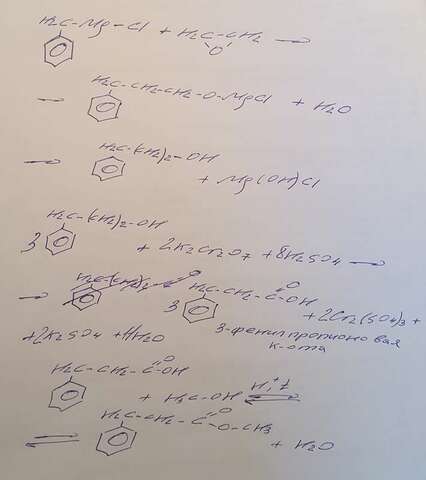 H2C-Mg-Cl + H2C-CH2 →
O
→ H2C-CH2-CH2-O-MgCl + H2O
→ H2C-(CH2)2-OH + Mg(OH)Cl
3 H2C-(CH2)2-OH + 2K2Cr2O7 + 8H2SO4 →
→ 3 H2C-CH2-C=O OH + 2Cr2(SO4)3 +
3-фенилпропионовая
к-ота
+2K2SO4 + 11H2O
H2C-CH2-C=O OH + H3C-OH H+, t ⇌
⇌ H2C-CH2-C=O O-CH3 + H2O